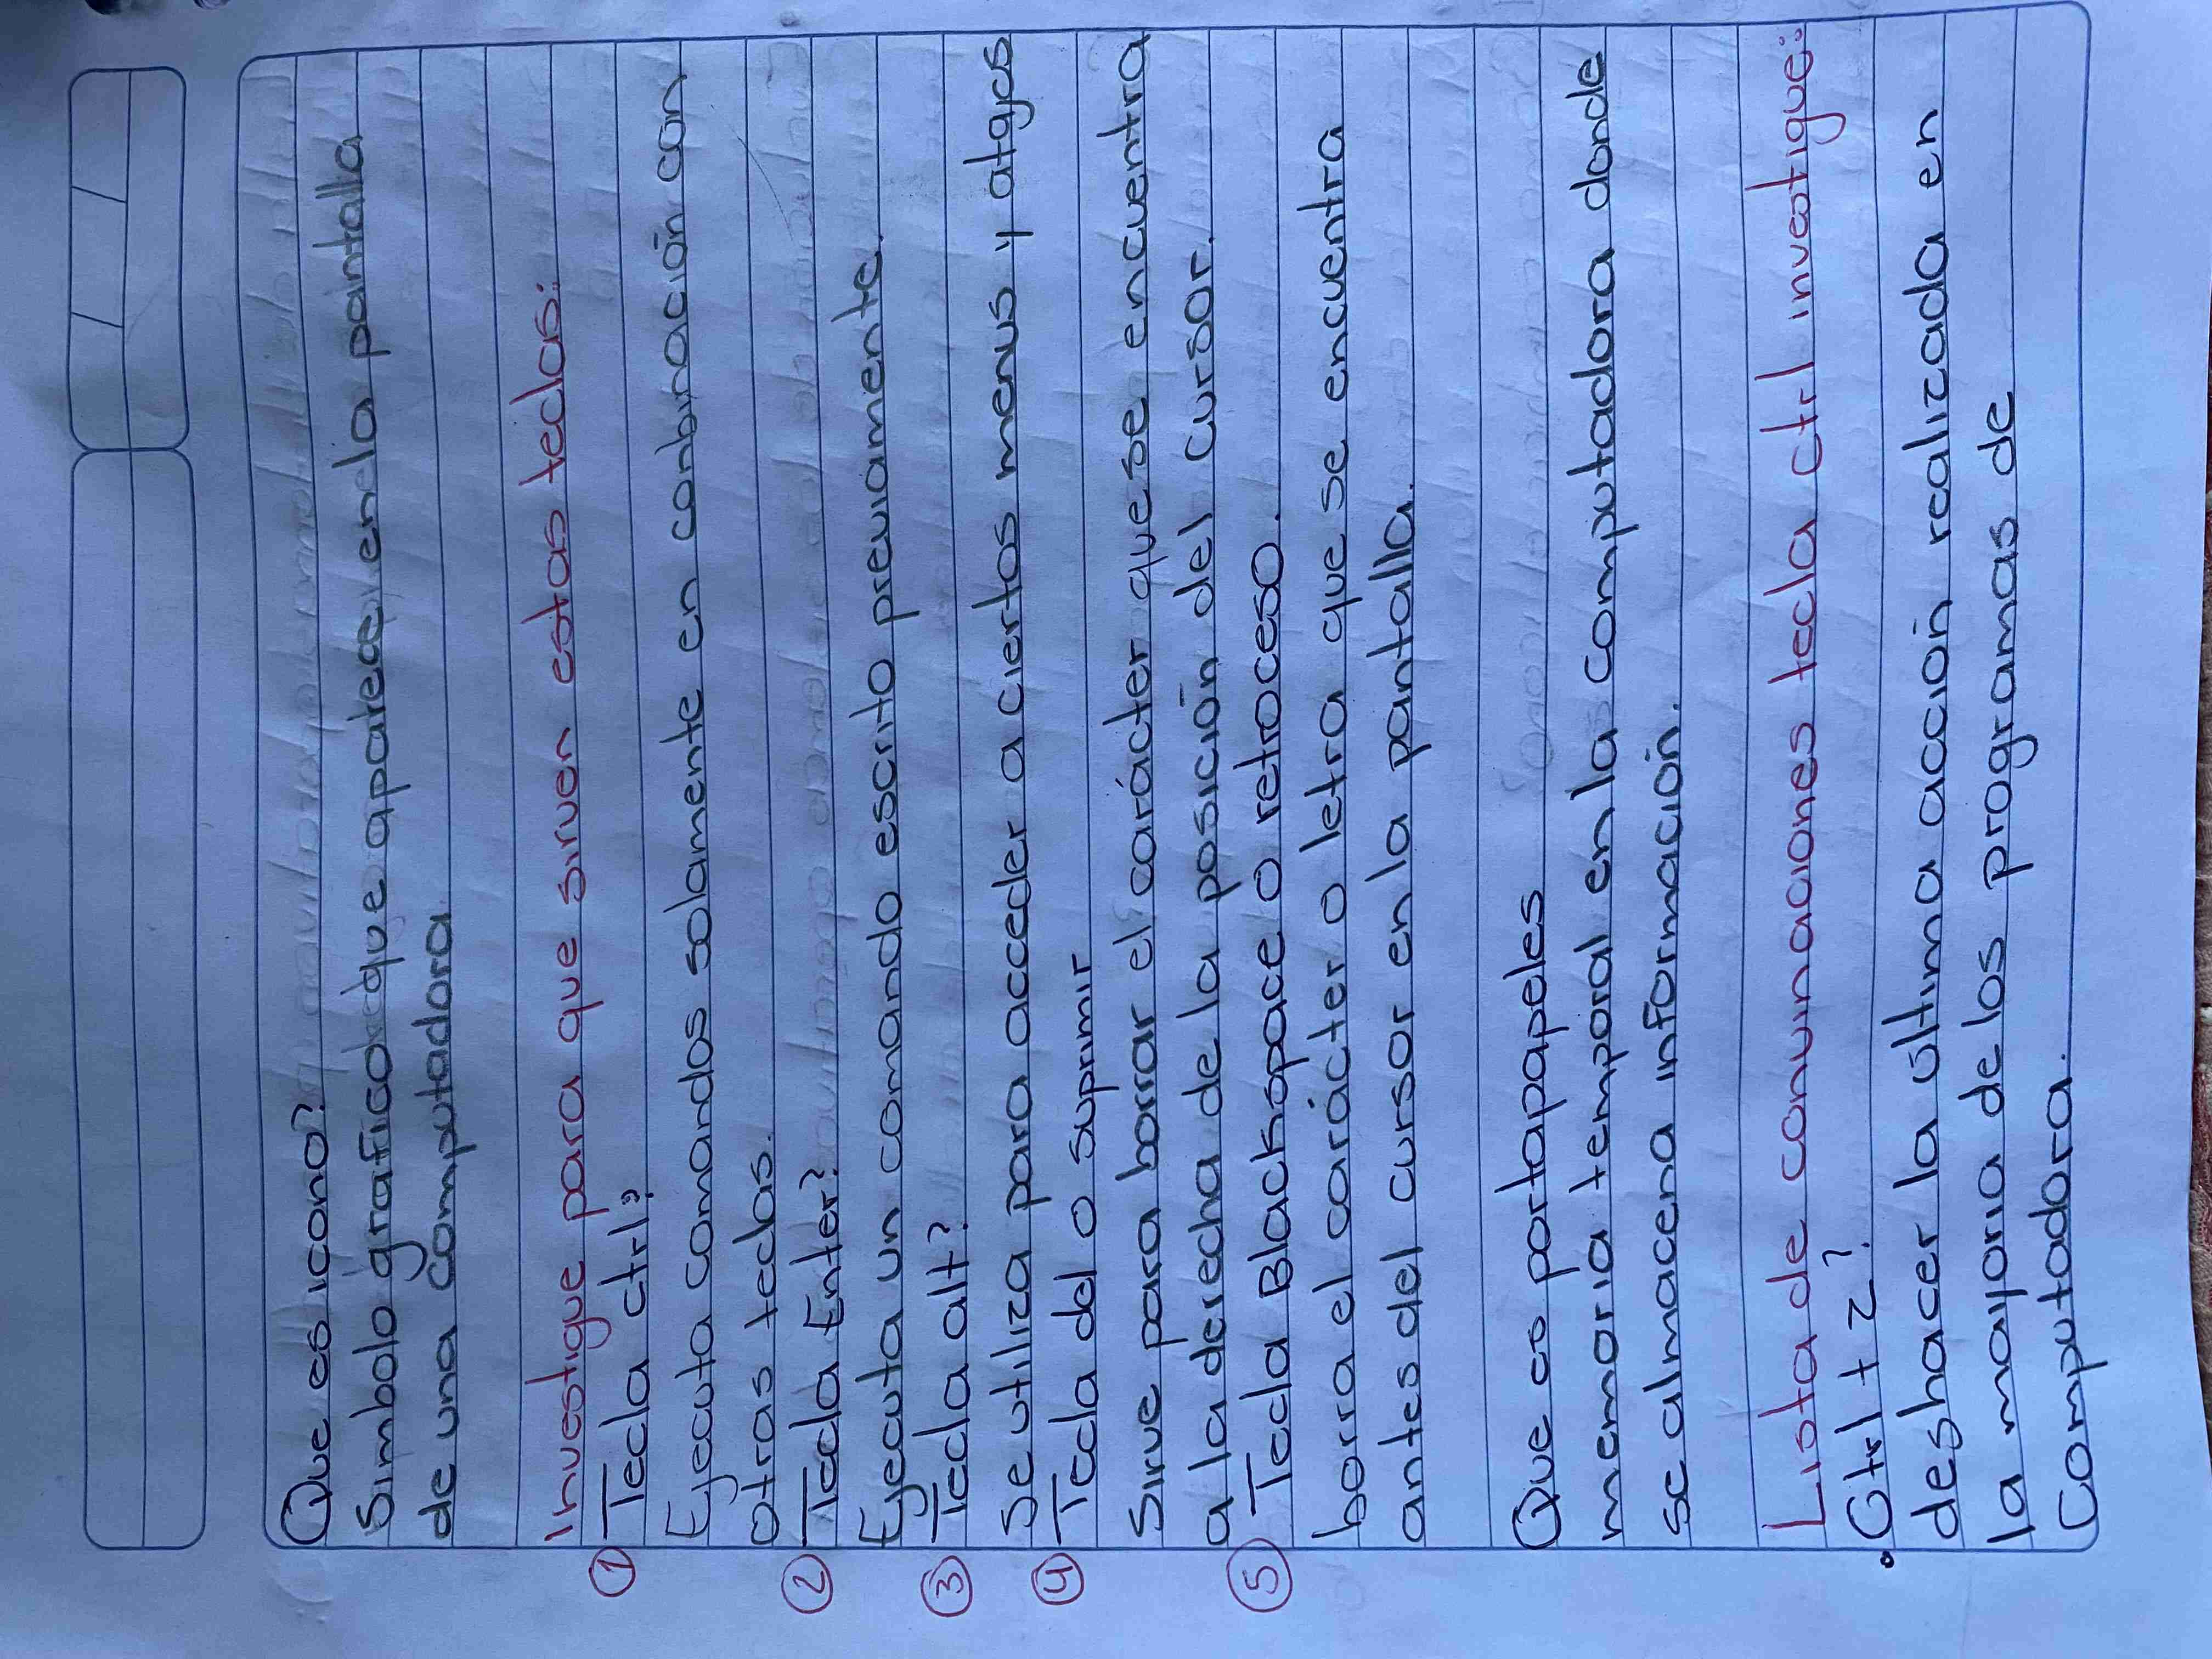 Que es icono?
Simbolo grafico que aparece en la pantalla
de una computadora
Investigue para que sirven estas teclas:
① Tecla ctrl?
Ejecuta comandos solamente en conbinación con
otras teclas.
② Tecla Enter?
Ejecuta un comando escrito previamente.
③ Tecla alt?
Se utiliza para acceder a ciertos menus y
④ Tecla del o suprimir
Sirve para borrar el carácter que se encuentra
a la derecha de la posición del cursor.
⑤ Tecla Blackspace o retroceso.
borra el carácter o letra que se encuentra
antes del cursor en la pantalla.
Que es portapapeles
memoria temporal en la computadora donde
se almacena información.
Lista de convinaciones tecla ctrl investigue:
• Ctrl + z?
deshacer la última acción realizada en
la mayoria de los programas de
Computadora.